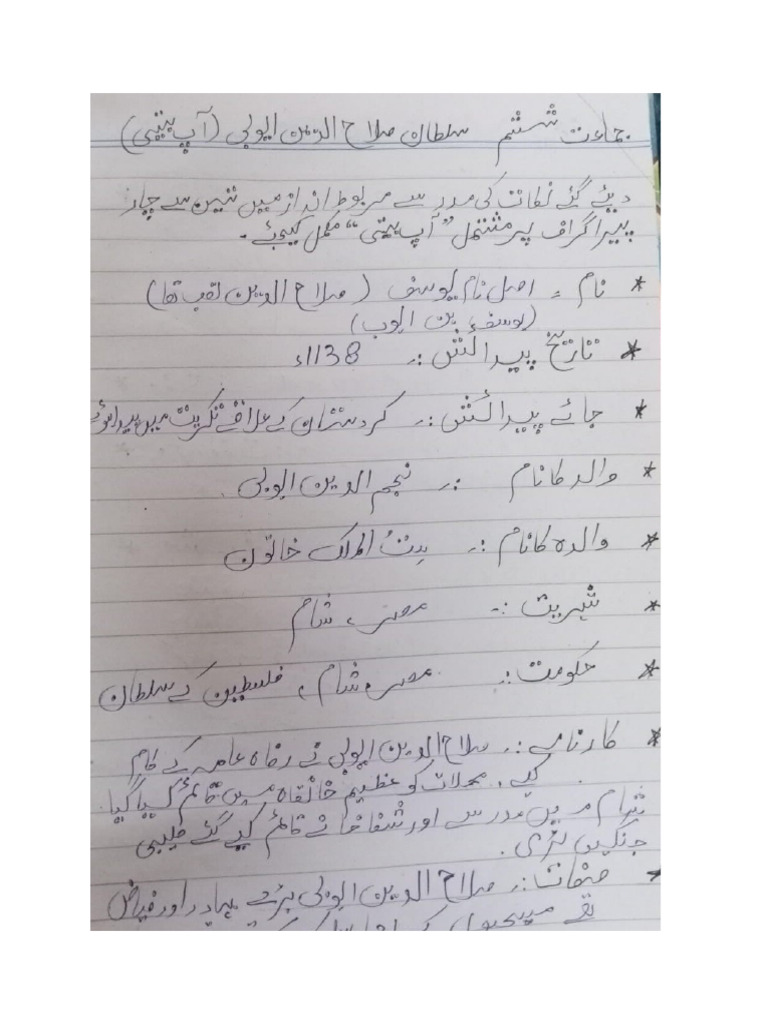 جماعت ششم سلطان صلاح الدین ایوبی (آپ بیتی)
دیئے گئے نکات کی مدد سے مربوط انداز میں تین سے چار
پیراگراف پر مشتمل "آپ بیتی" مکمل کیجئے۔
* نام :۔ اصل نام یوسف (صلاح الدین لقب تھا)
(یوسف بن ایوب)
* تاریخ پیدائش :۔ 1138ء
* جائے پیدائش :۔ کردستان کے علاقے تکریت میں پیدا ہوئے
* والد کا نام :۔ نجم الدین ایوبی۔
* والدہ کا نام :۔ بنتُ الملک خاتون
* شہریت :۔ مصر، شام
* حکومت :۔ مصر، شام، فلسطین کے سلطان
* کارنامے :۔ صلاح الدین ایوبی نے رفاہ عامہ کے کام
کیے۔ محلات کو عظیم خانقاہ میں قائم کیا گیا۔
شام میں مدرسے اور شفاخانے قائم کیے گئے صلیبی
جنگیں لڑی۔
* صفات :۔ صلاح الدین ایوبی بڑے بہادر اور فیاض
تھے